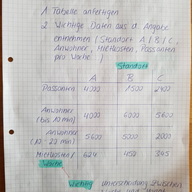 1. Tabelle anfertigen
2. Wichtige Daten aus d. Angabe
entnehmen (Standort A | B | C,
Anwohner, Mietkosten, Passanten
pro Woche)
Standort
A B C
Passanten 4000 1500 2400
Anwohner
(bis 10 min) 4000 6000 5800
Anwohner
(10 - 20 min) 5600 5000 2000
Mietkosten/ 624 450 345
Woche
Wichtig Unterscheidung zwischen